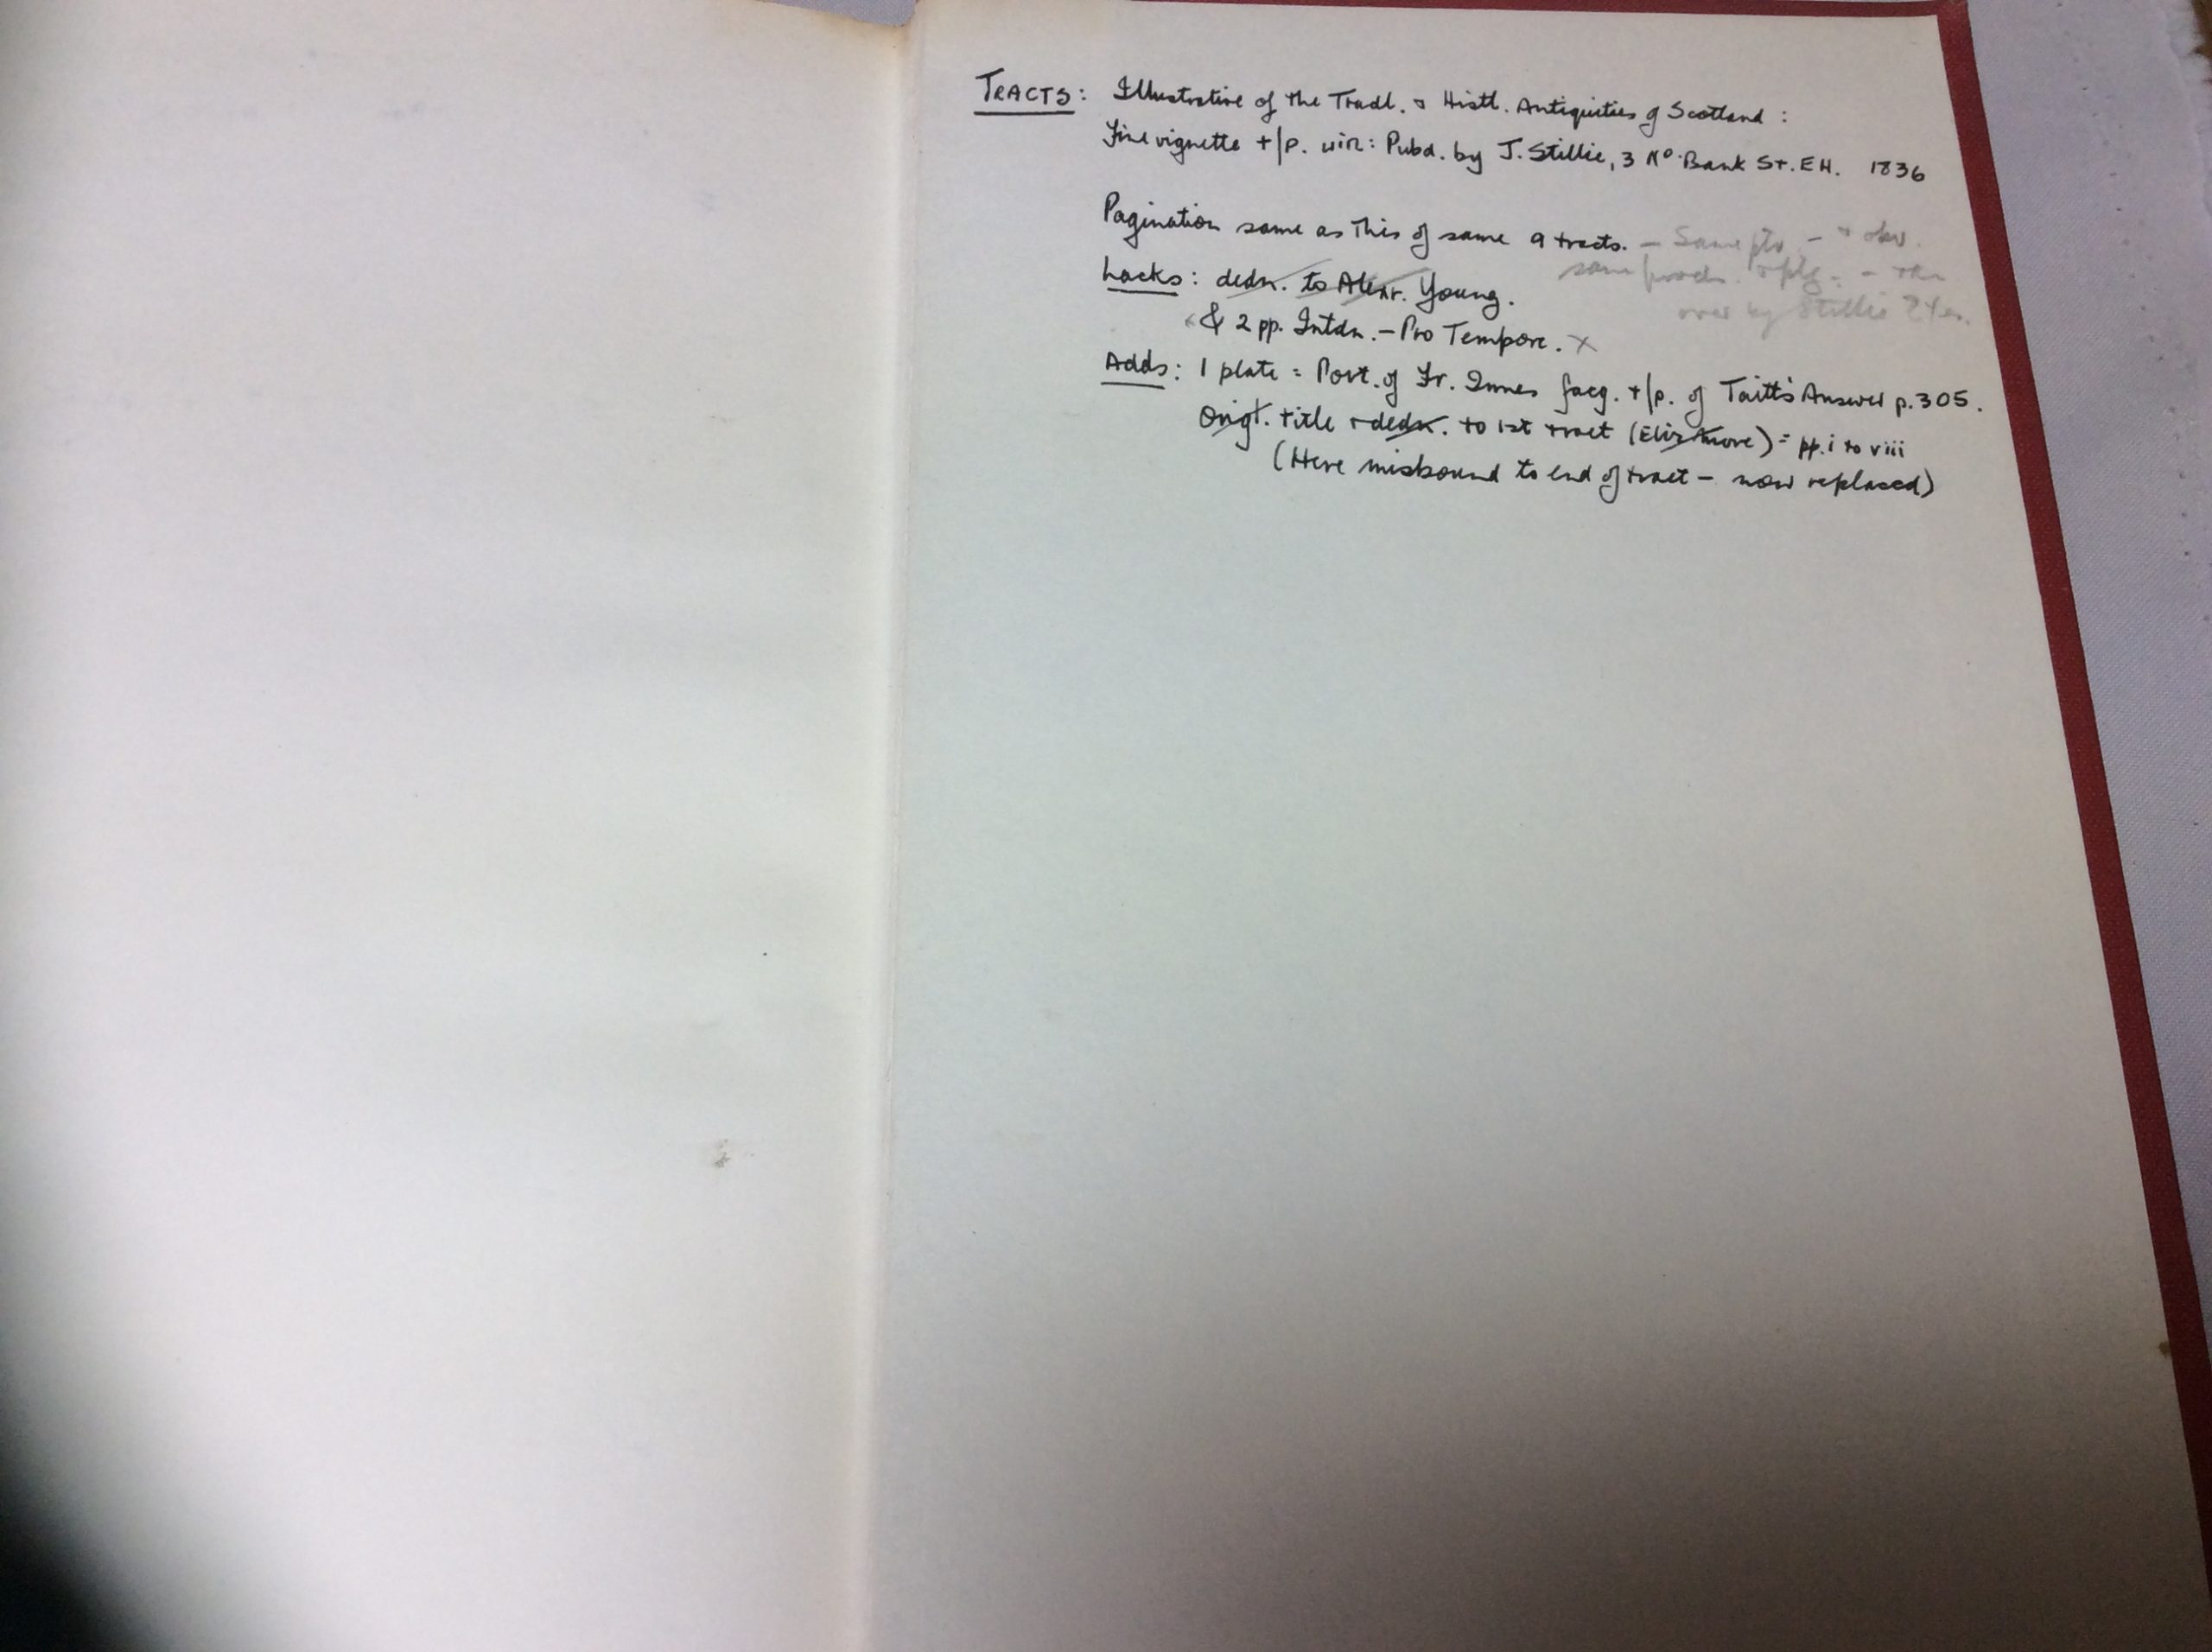 TRACTS: Illustrative of the Tradl. & Histl. Antiquities of Scotland:
Fine vignette t/p. with: Pubd. by J. Stillie, 3 No. Bank St. EH. 1836
Pagination same as this of same 9 tracts. – Same – & 
same – the
Lacks: dedn. to Alexr. Young. over by Stillie
& 2 pp. Intdn. – Pro Tempore. X
Adds: 1 plate = Port. of Fr. Innes facg. t/p. of Taitt's Answer p. 305.
Origl. title & dedn. to 1st tract (Eliz. More) = pp. i to viii
(Here misbound to end of tract – now replaced)